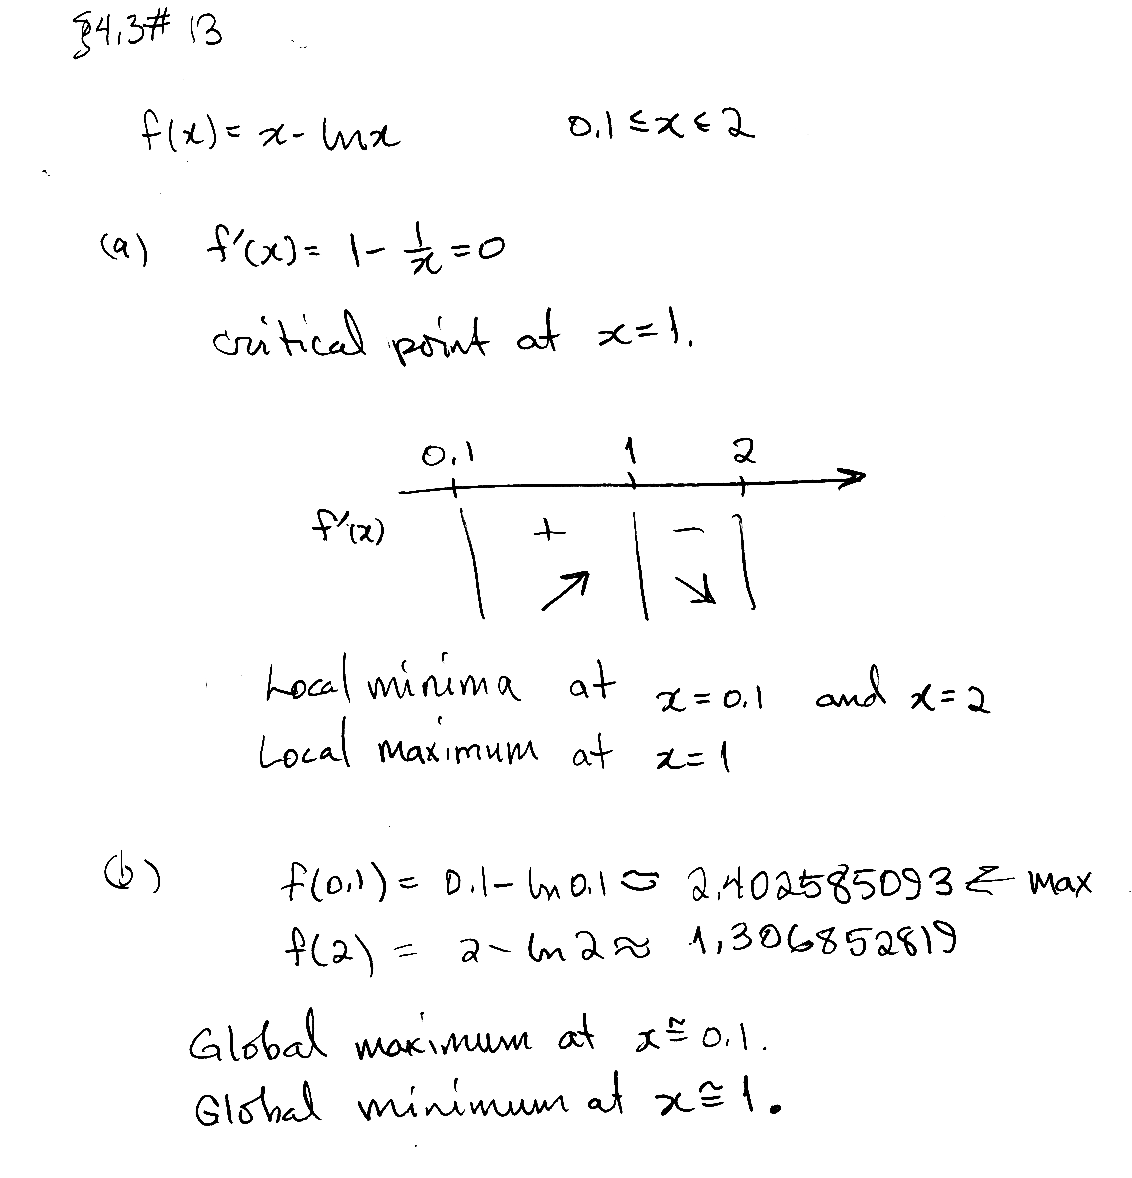 §4.3# 13
f(x) = x - ln x 0.1 ≤ x ≤ 2
(a) f'(x) = 1 - 1/x = 0
critical point at x = 1.
0.1 1 2
f'(x) + -
↗ ↘
Local minima at x = 0.1 and x = 2
Local maximum at x = 1
(b) f(0.1) = 0.1 - ln 0.1 ≈ 2.402585093 ← max
f(2) = 2 - ln 2 ≈ 1.306852819
Global maximum at x ≅ 0.1.
Global minimum at x ≅ 1.